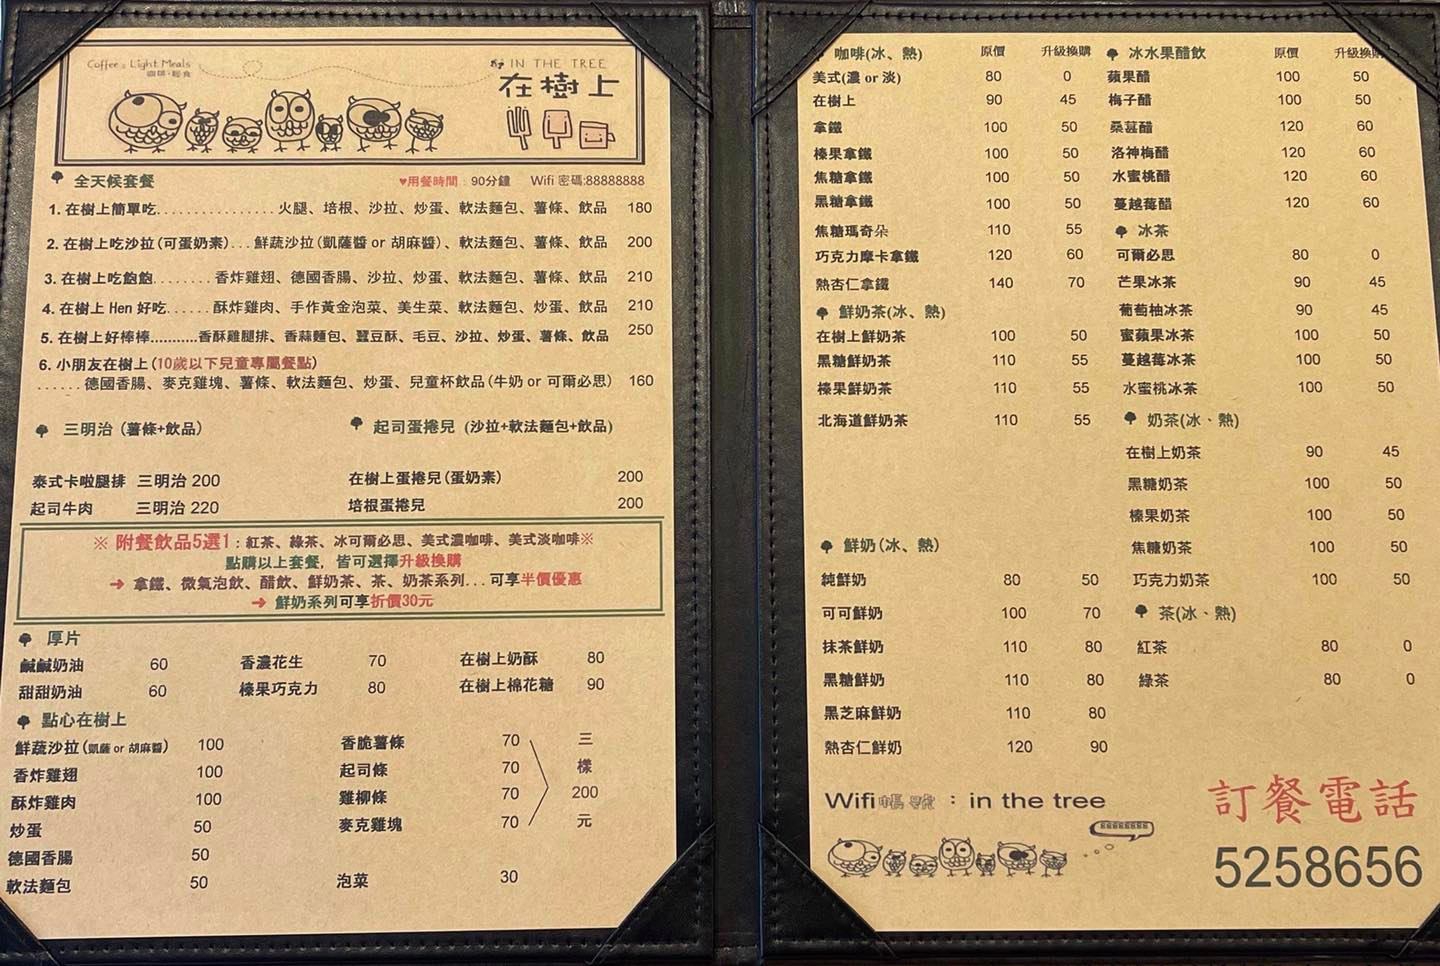 Coffee & Light Meals
咖啡·輕食
IN THE TREE
在樹上
全天候套餐 ♥用餐時間：90分鐘 Wifi 密碼:88888888
1. 在樹上簡單吃................火腿、培根、沙拉、炒蛋、軟法麵包、薯條、飲品 180
2. 在樹上吃沙拉(可蛋奶素)...鮮蔬沙拉(凱薩醬 or 胡麻醬)、軟法麵包、薯條、飲品 200
3. 在樹上吃飽飽........香炸雞翅、德國香腸、沙拉、炒蛋、軟法麵包、薯條、飲品 210
4. 在樹上 Hen 好吃......酥炸雞肉、手作黃金泡菜、美生菜、軟法麵包、炒蛋、飲品 210
5. 在樹上好棒棒...........香酥雞腿排、香蒜麵包、蠶豆酥、毛豆、沙拉、炒蛋、薯條、飲品 250
6. 小朋友在樹上(10歲以下兒童專屬餐點)
......德國香腸、麥克雞塊、薯條、軟法麵包、炒蛋、兒童杯飲品(牛奶 or 可爾必思) 160
三明治 (薯條+飲品)
泰式卡啦腿排 三明治 200
起司牛肉 三明治 220
起司蛋捲兒 (沙拉+軟法麵包+飲品)
在樹上蛋捲兒(蛋奶素) 200
培根蛋捲兒 200
※ 附餐飲品5選1：紅茶、綠茶、冰可爾必思、美式濃咖啡、美式淡咖啡※
點購以上套餐，皆可選擇升級換購
➔ 拿鐵、微氣泡飲、醋飲、鮮奶茶、茶、奶茶系列...可享半價優惠
➔ 鮮奶系列可享折價30元
厚片
鹹鹹奶油 60 香濃花生 70 在樹上奶酥 80
甜甜奶油 60 榛果巧克力 80 在樹上棉花糖 90
點心在樹上
鮮蔬沙拉(凱薩 or 胡麻醬) 100
香炸雞翅 100
酥炸雞肉 100
炒蛋 50
德國香腸 50
軟法麵包 50
香脆薯條 70
起司條 70
雞柳條 70
麥克雞塊 70
三樣200元
泡菜 30
咖啡(冰、熱) 原價 升級換購
美式(濃 or 淡) 80 0
在樹上 90 45
拿鐵 100 50
榛果拿鐵 100 50
焦糖拿鐵 100 50
黑糖拿鐵 100 50
焦糖瑪奇朵 110 55
巧克力摩卡拿鐵 120 60
熱杏仁拿鐵 140 70
鮮奶茶(冰、熱)
在樹上鮮奶茶 100 50
黑糖鮮奶茶 110 55
榛果鮮奶茶 110 55
北海道鮮奶茶 110 55
鮮奶(冰、熱)
純鮮奶 80 50
可可鮮奶 100 70
抹茶鮮奶 110 80
黑糖鮮奶 110 80
黑芝麻鮮奶 110 80
熱杏仁鮮奶 120 90
冰水果醋飲 原價 升級換購
蘋果醋 100 50
梅子醋 100 50
桑葚醋 120 60
洛神梅醋 120 60
水蜜桃醋 120 60
蔓越莓醋 120 60
冰茶
可爾必思 80 0
芒果冰茶 90 45
葡萄柚冰茶 90 45
蜜蘋果冰茶 100 50
蔓越莓冰茶 100 50
水蜜桃冰茶 100 50
奶茶(冰、熱)
在樹上奶茶 90 45
黑糖奶茶 100 50
榛果奶茶 100 50
焦糖奶茶 100 50
巧克力奶茶 100 50
茶(冰、熱)
紅茶 80 0
綠茶 80 0
Wifi帳號：in the tree
88888888
訂餐電話
5258656